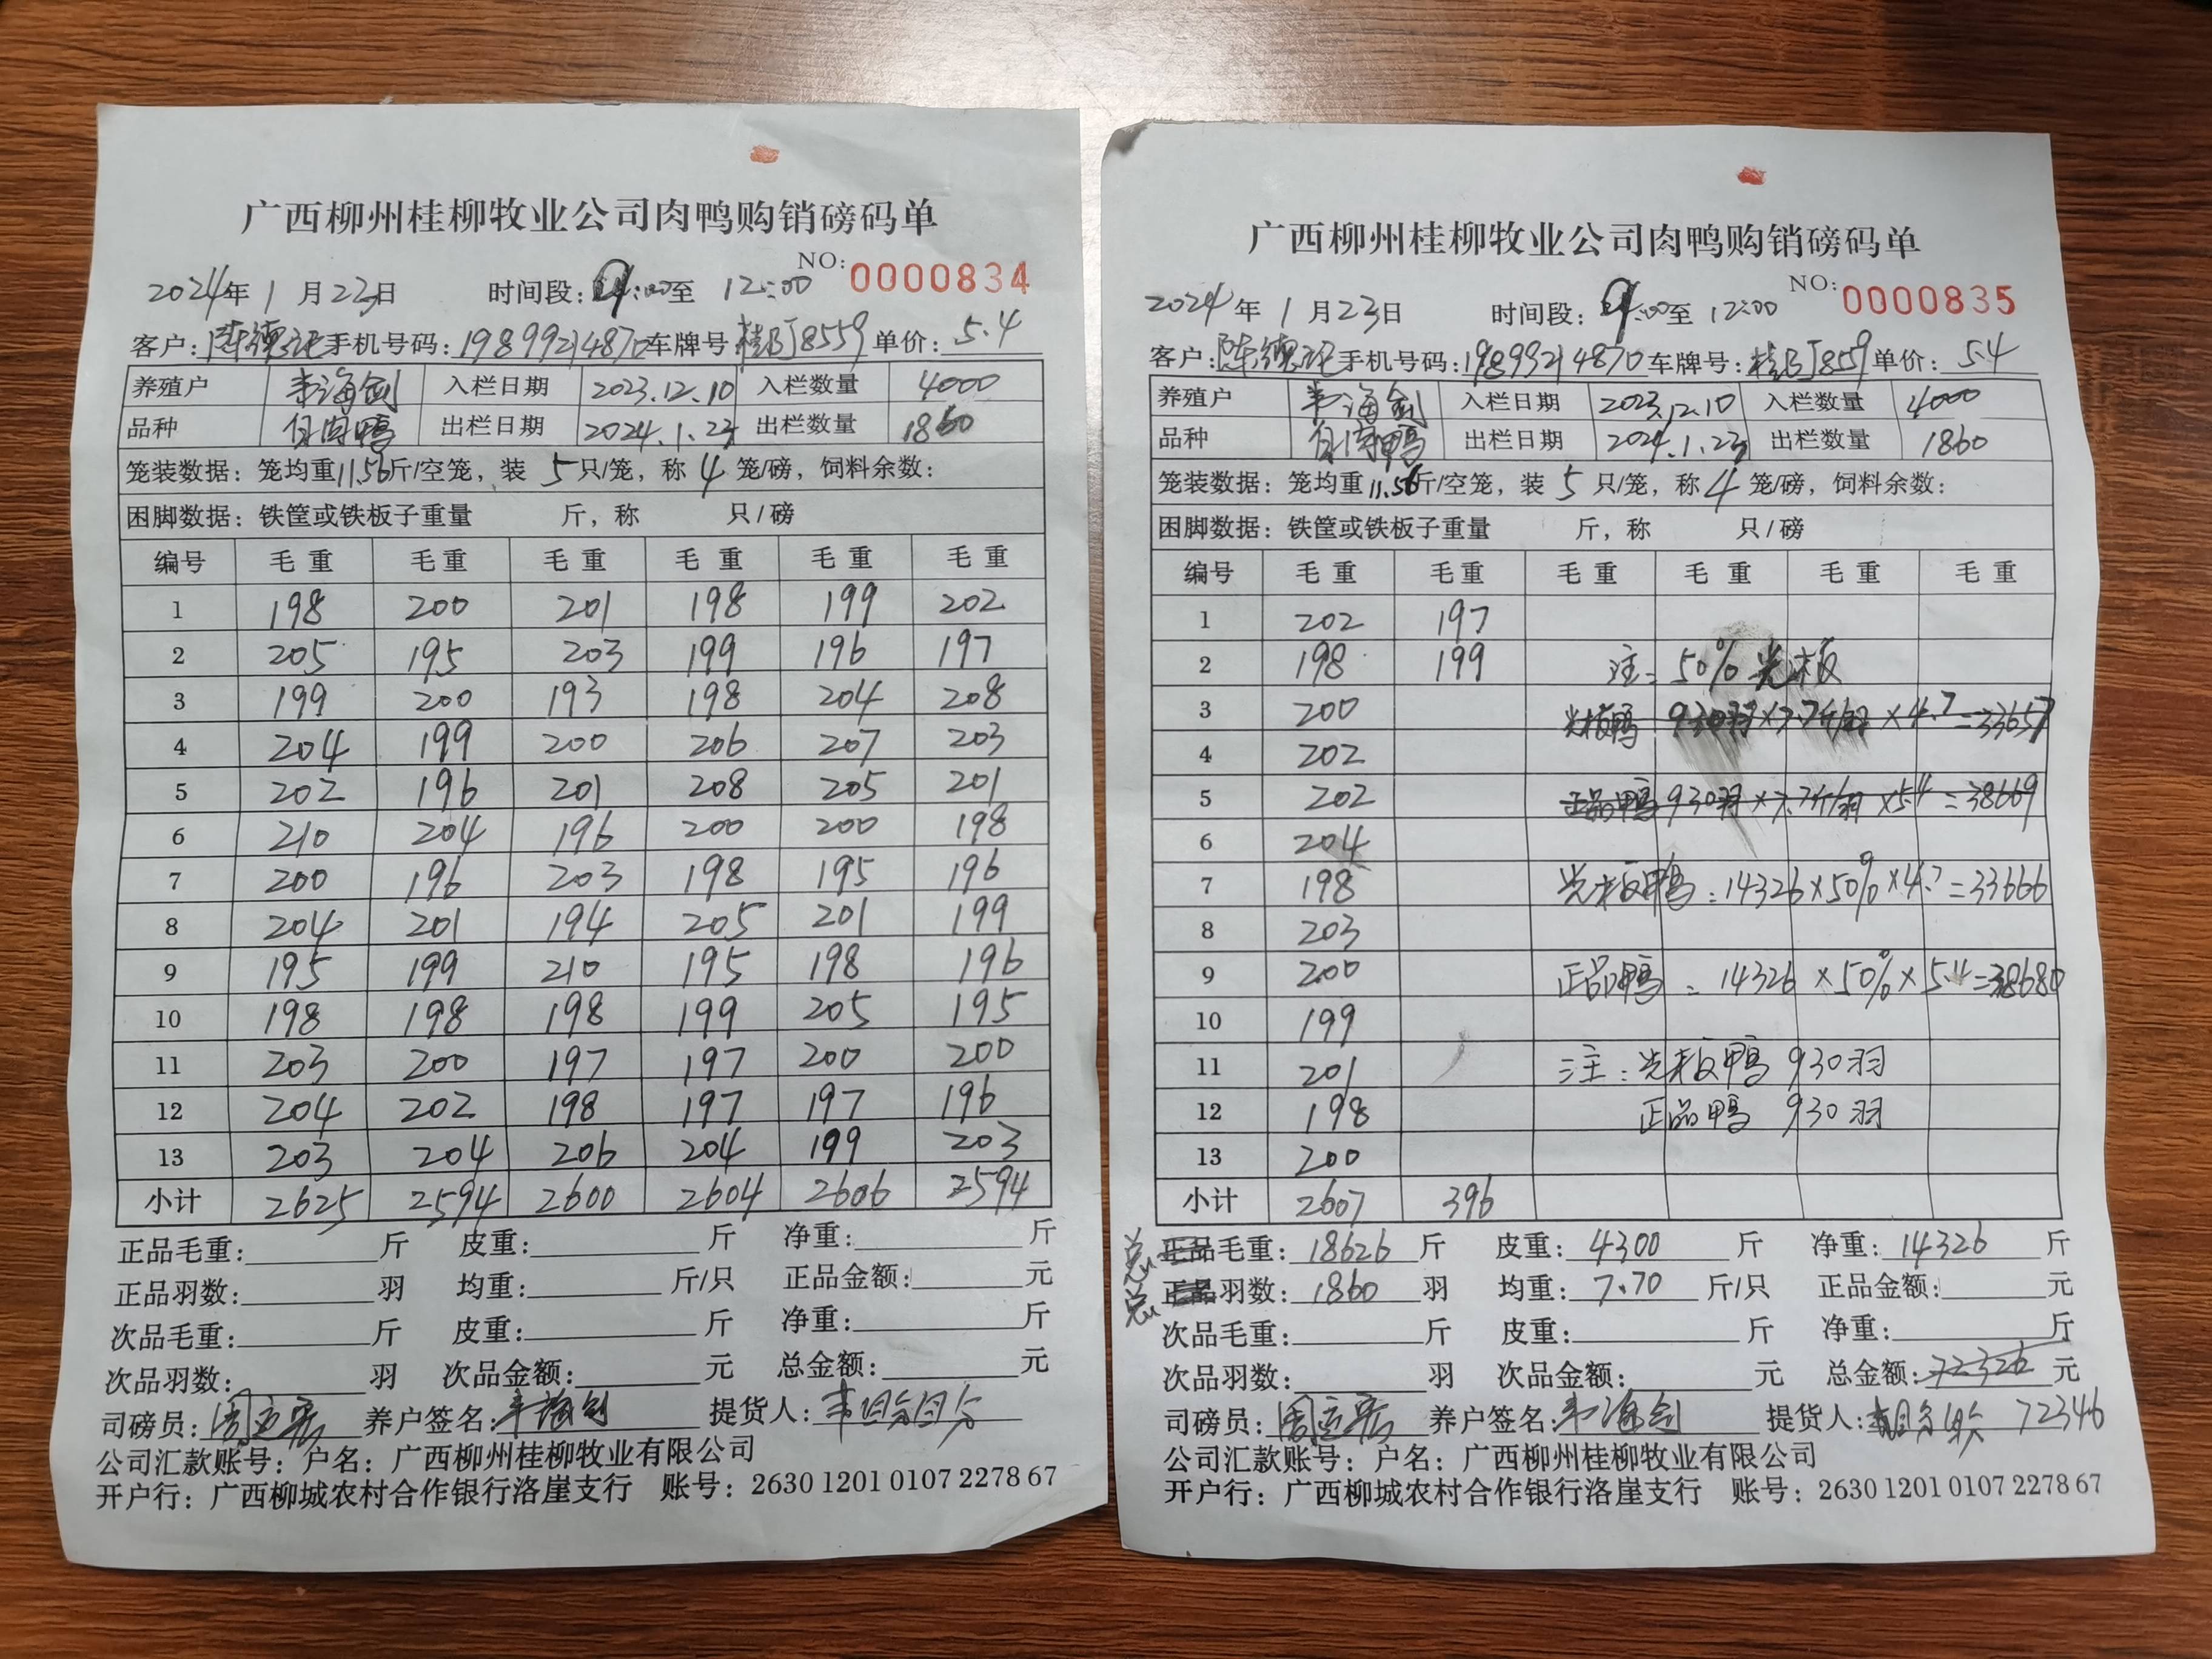 广西柳州桂柳牧业公司肉鸭购销磅码单
NO: 0000834
2024年 1 月 23日 时间段: 9:00至 12:00
客户: 陈德 手机号码: 19899214870 车牌号 桂BJ8559 单价: 5.4
养殖户 韦海剑 入栏日期 2023.12.10 入栏数量 4000
品种 白肉鸭 出栏日期 2024.1.23 出栏数量 1860
笼装数据: 笼均重11.56斤/空笼, 装 5 只/笼, 称 4 笼/磅, 饲料余数:
困脚数据: 铁筐或铁板子重量 斤, 称 只/磅
编号 毛重 毛重 毛重 毛重 毛重 毛重
1 198 200 201 198 199 202
2 205 195 203 199 196 197
3 199 200 193 198 204 208
4 204 199 200 206 207 203
5 202 196 201 208 205 201
6 210 204 196 200 200 198
7 200 196 203 198 195 196
8 204 201 194 205 201 199
9 195 199 210 195 198 196
10 198 198 198 199 205 195
11 203 200 197 197 200 200
12 204 202 198 197 197 196
13 203 204 206 204 199 203
小计 2625 2594 2600 2604 2606 2594
正品毛重: 斤 皮重: 斤 净重: 斤
正品羽数: 羽 均重: 斤/只 正品金额: 元
次品毛重: 斤 皮重: 斤 净重: 斤
次品羽数: 羽 次品金额: 元 总金额: 元
司磅员: 养户签名: 韦海剑 提货人:
公司汇款账号: 户名: 广西柳州桂柳牧业有限公司
开户行: 广西柳城农村合作银行洛崖支行 账号: 2630 1201 0107 2278 67
广西柳州桂柳牧业公司肉鸭购销磅码单
NO: 0000835
2024 年 1 月 23日 时间段: 9:00至 12:00
客户: 陈德 手机号码: 19899214870 车牌号: 桂BJ8559 单价: 5.4
养殖户 韦海剑 入栏日期 2023.12.10 入栏数量 4000
品种 白肉鸭 出栏日期 2024.1.23 出栏数量 1860
笼装数据: 笼均重11.56斤/空笼, 装 5 只/笼, 称 4 笼/磅, 饲料余数:
困脚数据: 铁筐或铁板子重量 斤, 称 只/磅
编号 毛重 毛重 毛重 毛重 毛重 毛重
1 202 197
2 198 199 注: 50% 光板
3 200 光板鸭 930羽×7.7斤/羽 ×4.7=33657
4 202
5 202 正品鸭 930羽×7.7斤/羽 ×5.4=38669
6 204
7 198 光板鸭: 14326×50%×4.7=33666
8 203
9 200 正品鸭: 14326×50%×5.4=38680
10 199
11 201 注: 光板鸭 930羽
12 198 正品鸭 930羽
13 200
小计 2607 396
总 正品毛重: 18626 斤 皮重: 4300 斤 净重: 14326 斤
总 正品羽数: 1860 羽 均重: 7.70 斤/只 正品金额: 元
次品毛重: 斤 皮重: 斤 净重: 斤
次品羽数: 羽 次品金额: 元 总金额: 72326 元
司磅员: 养户签名: 韦海剑 提货人: 72346
公司汇款账号: 户名: 广西柳州桂柳牧业有限公司
开户行: 广西柳城农村合作银行洛崖支行 账号: 2630 1201 0107 2278 67